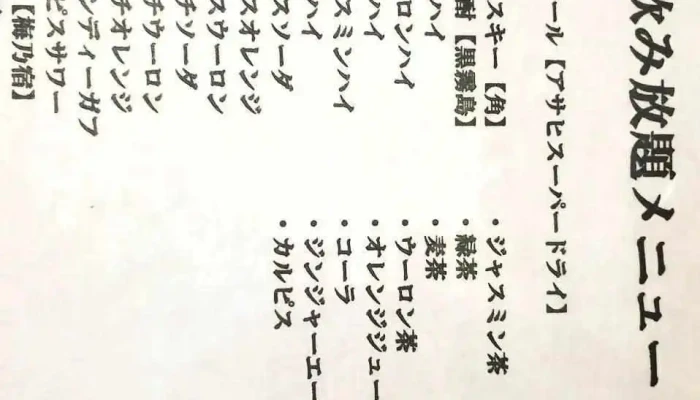 飲み放題メニュー
ール【アサヒスーパードライ】
スキー【角】
酎【黒霧島】
ハイ
ロンハイ
ハイ
スミンハイ
ハイ
スソーダ
スオレンジ
スウーロン
チソーダ
チウーロン
チオレンジ
ンディーガフ
ピスサワー
【梅乃宿】
・ジャスミン茶
・緑茶
・麦茶
・ウーロン茶
・オレンジジュー
・コーラ
・ジンジャーエー
・カルピス